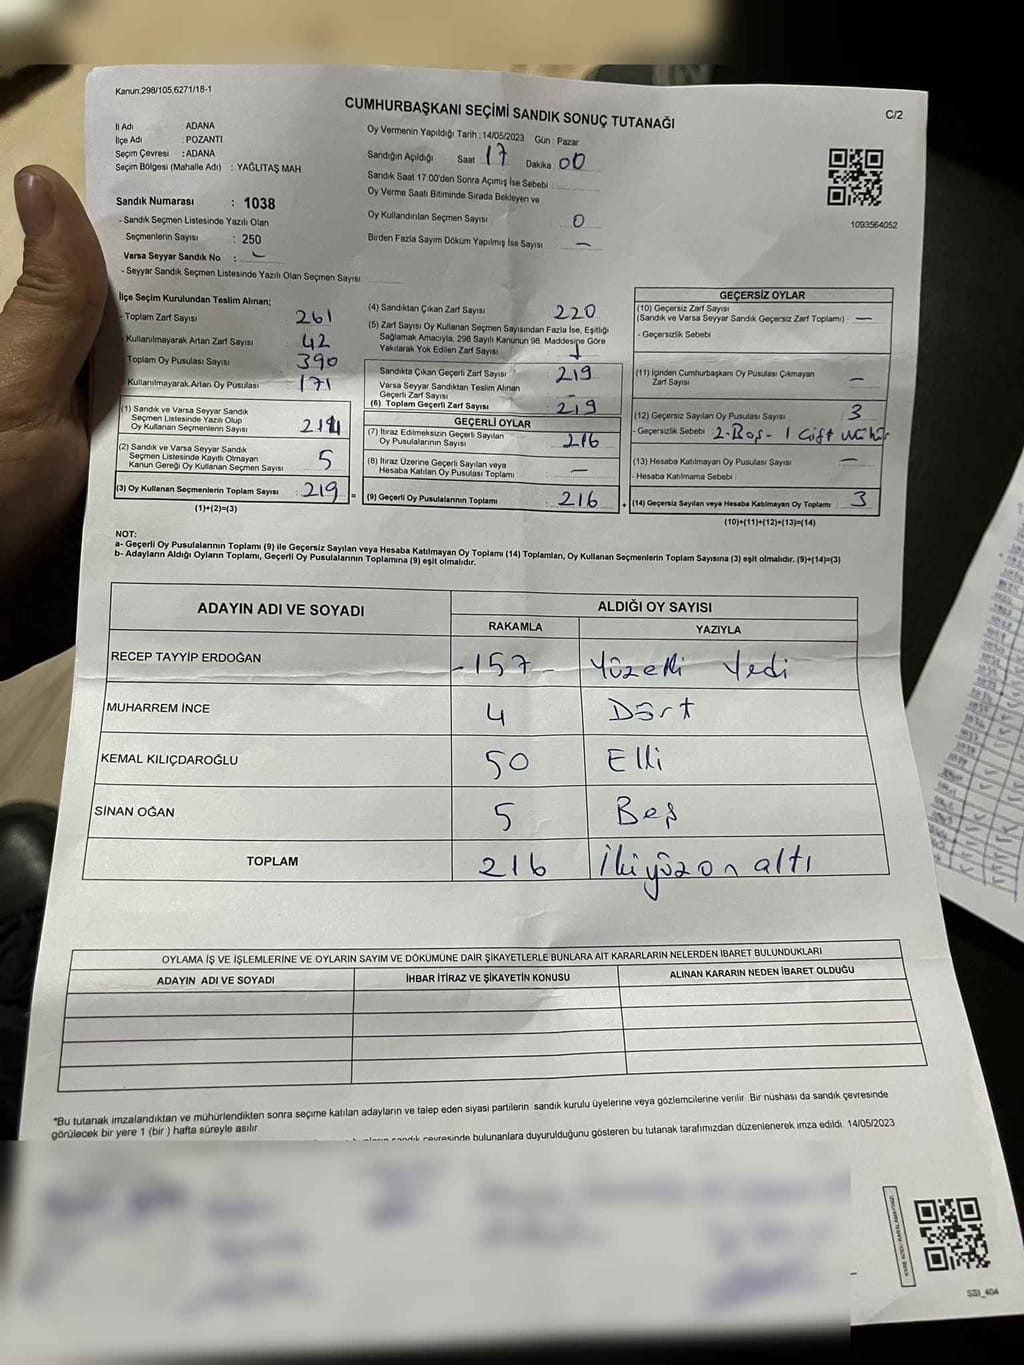 Kanun:298/105,6271/18-1
CUMHURBAŞKANI SEÇİMİ SANDIK SONUÇ TUTANAĞI
C/2
İl Adı : ADANA
İlçe Adı : POZANTI
Seçim Çevresi : ADANA
Seçim Bölgesi (Mahalle Adı) : YAĞLITAŞ MAH
Oy Vermenin Yapıldığı Tarih : 14/05/2023 Gün : Pazar
Sandığın Açıldığı Saat 17 Dakika : 00
Sandık Saat 17:00'den Sonra Açımış İse Sebebi :
Oy Verme Saati Bitiminde Sırada Bekleyen ve
Oy Kullandırılan Seçmen Sayısı 0
Birden Fazla Sayım Döküm Yapılmış İse Sayısı : -
1093564052
Sandık Numarası : 1038
- Sandık Seçmen Listesinde Yazılı Olan
Seçmenlerin Sayısı : 250
Varsa Seyyar Sandık No : -
- Seyyar Sandık Seçmen Listesinde Yazılı Olan Seçmen Sayısı:
İlçe Seçim Kurulundan Teslim Alınan;
- Toplam Zarf Sayısı : 261
- Kullanılmayarak Artan Zarf Sayısı : 42
- Toplam Oy Pusulası Sayısı : 390
- Kullanılmayarak Artan Oy Pusulası : 171
(1) Sandık ve Varsa Seyyar Sandık
Seçmen Listesinde Yazılı Olup
Oy Kullanan Seçmenlerin Sayısı : 214
(2) Sandık ve Varsa Seyyar Sandık
Seçmen Listesinde Kayıtlı Olmayan
Kanun Gereği Oy Kullanan Seçmen Sayısı : 5
(3) Oy Kullanan Seçmenlerin Toplam Sayısı : 219 =
(1)+(2)=(3)
(4) Sandıktan Çıkan Zarf Sayısı : 220
(5) Zarf Sayısı Oy Kullanan Seçmen Sayısından Fazla İse, Eşitliği
Sağlamak Amacıyla, 298 Sayılı Kanunun 98. Maddesine Göre
Yakılarak Yok Edilen Zarf Sayısı : 1
Sandıkta Çıkan Geçerli Zarf Sayısı : 219
Varsa Seyyar Sandıktan Teslim Alınan
Geçerli Zarf Sayısı : -
(6) Toplam Geçerli Zarf Sayısı : 219
GEÇERLİ OYLAR
(7) İtiraz Edilmeksizin Geçerli Sayılan
Oy Pusulalarının Sayısı : 216
(8) İtiraz Üzerine Geçerli Sayılan veya
Hesaba Katılan Oy Pusulası Toplamı : -
(9) Geçerli Oy Pusulalarının Toplamı : 216 +
GEÇERSİZ OYLAR
(10) Geçersiz Zarf Sayısı
(Sandık ve Varsa Seyyar Sandık Geçersiz Zarf Toplamı) : -
- Geçersizlik Sebebi :
(11) İçinden Cumhurbaşkanı Oy Pusulası Çıkmayan
Zarf Sayısı : -
(12) Geçersiz Sayılan Oy Pusulası Sayısı : 3
- Geçersizlik Sebebi : 2-Boş - 1 Çift mühür
(13) Hesaba Katılmayan Oy Pusulası Sayısı : -
- Hesaba Katılmama Sebebi :
(14) Geçersiz Sayılan veya Hesaba Katılmayan Oy Toplamı : 3
(10)+(11)+(12)+(13)=(14)
NOT:
a- Geçerli Oy Pusulalarının Toplamı (9) ile Geçersiz Sayılan veya Hesaba Katılmayan Oy Toplamı (14) Toplamları, Oy Kullanan Seçmenlerin Toplam Sayısına (3) eşit olmalıdır. (9)+(14)=(3)
b- Adayların Aldığı Oyların Toplamı, Geçerli Oy Pusulalarının Toplamına (9) eşit olmalıdır.
ADAYIN ADI VE SOYADI ALDIĞI OY SAYISI
RAKAMLA YAZIYLA
RECEP TAYYİP ERDOĞAN -157- Yüzelli Yedi
MUHARREM İNCE 4 Dört
KEMAL KILIÇDAROĞLU 50 Elli
SİNAN OĞAN 5 Beş
TOPLAM 216 İkiyüzon altı
OYLAMA İŞ VE İŞLEMLERİNE VE OYLARIN SAYIM VE DÖKÜMÜNE DAİR ŞİKAYETLERLE BUNLARA AİT KARARLARIN NELERDEN İBARET BULUNDUKLARI
ADAYIN ADI VE SOYADI İHBAR İTİRAZ VE ŞİKAYETİN KONUSU ALINAN KARARIN NEDEN İBARET OLDUĞU
*Bu tutanak imzalandıktan ve mühürlendikten sonra seçime katılan adayların ve talep eden siyasi partilerin sandık kurulu üyelerine veya gözlemcilerine verilir. Bir nüshası da sandık çevresinde
görülecek bir yere 1 (bir) hafta süreyle asılır.
sandık çevresinde bulunanlara duyurulduğunu gösteren bu tutanak tarafımızdan düzenlenerek imza edildi. 14/05/2023
SSI_404